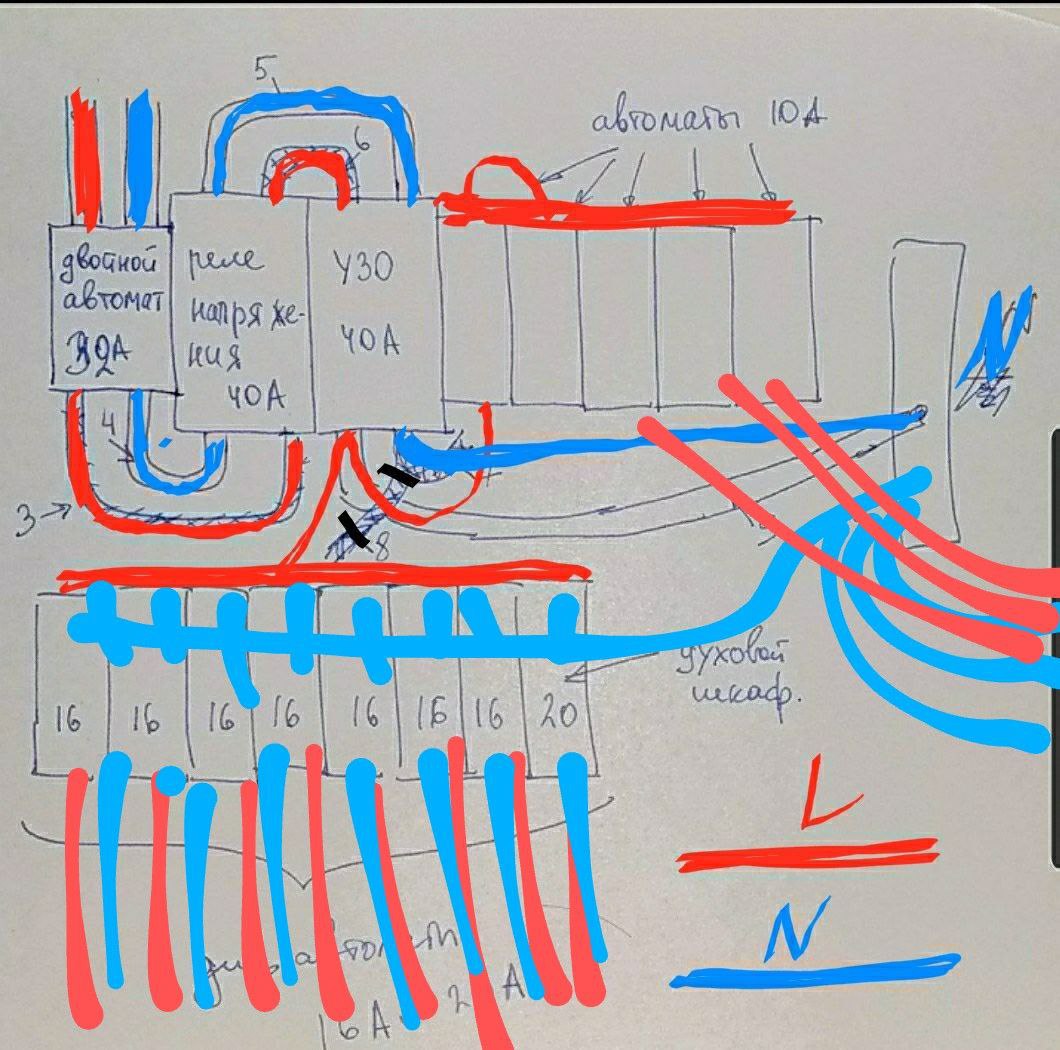 5
6
автоматы 10А
двойной
автомат
32А
реле
напряже-
ния
40А
УЗО
40А
N
4
3
8
духовой
шкаф.
16 16 16 16 16 16 16 20
L
N
16А 2 А